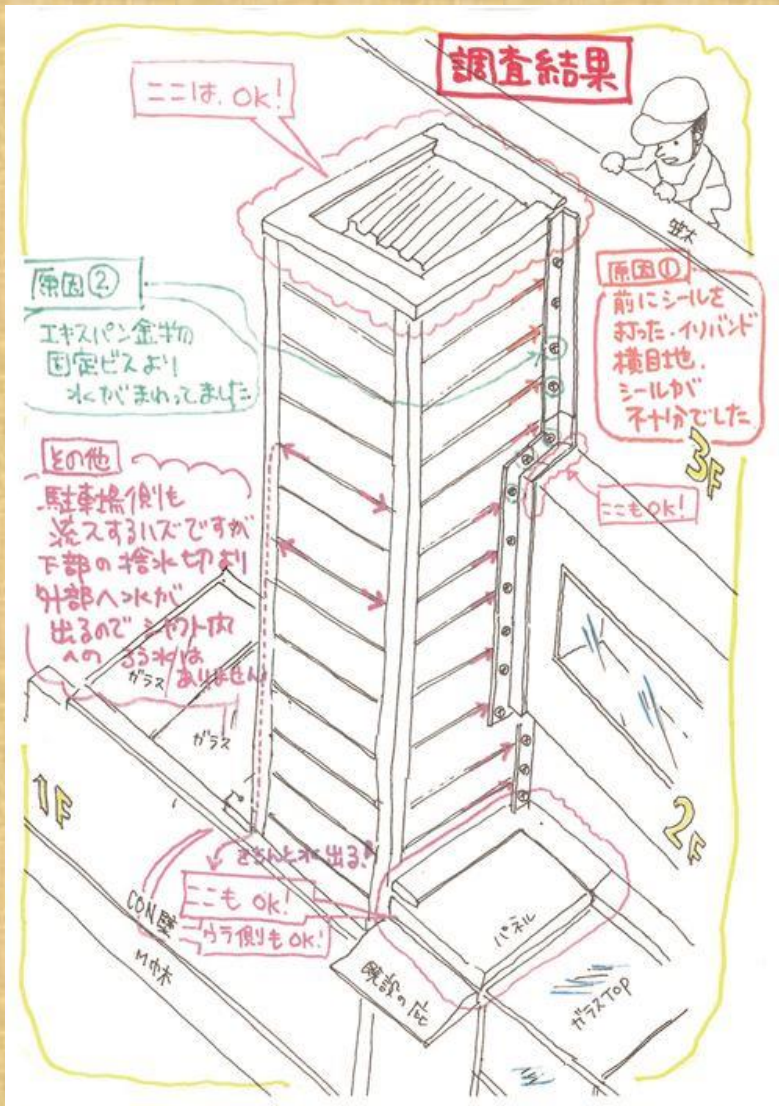 調査結果
ここは、OK!
笠木
原因②
エキスパン金物
固定ビスより
水がまわってました
原因①
前にシールを
打った・イソバンド
横目地、
シールが
不十分でした
3F
ここもOK!
その他
駐車場側も
流入するハズですが
下部の捨水切より
外部へ水が
出るので シャフト内
への ろう水は
ありません
ガラス
ガラス
1F
2F
きちんと水出る!
ここも OK!
ウラ側もOK!
CON壁
パネル
ガラスTOP